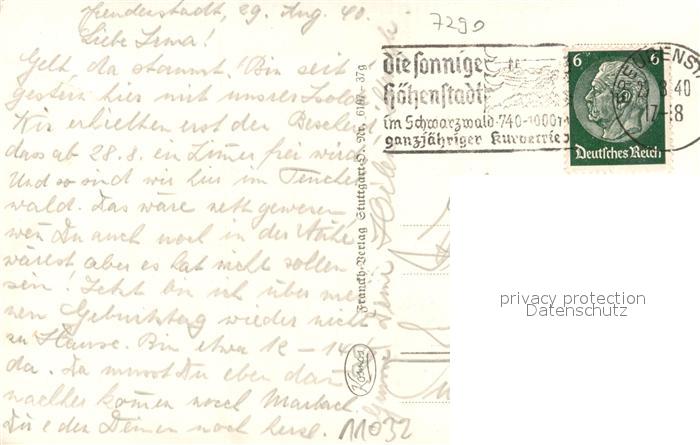 Freudenstadt, 29. Aug. 40.
Liebe Irma!
Gelt da staunst! Bin seit
gestern hier mit unsrer Isolde
Wir erhielten erst den Bescheid
dass ab 28.8. ein Zimer frei wird
Und so sind wir hier im Tencher
wald. Das wäre nett gewesen
wen Du auch noch in der Nähe
wärest aber es hat nicht sollen
sein! Jetzt bin ich über mei
nen Geburtstag wieder nicht
zu Hause. Bin etwa 12 - 14
da. Da musst Du eben dan
nachher komen nach Marbach.
Dir & den Deinen noch herzl.
Franckh-Verlag Stuttgart-O. Nr. 6107 - 37g
Kosmos
11032
7290
die sonnige
Höhenstadt
im Schwarzwald·740-1000
ganzjähriger Kurbetrieb
FREUDENST
29.8.40
17-18
6 6
Deutsches Reich
privacy protection
Datenschutz